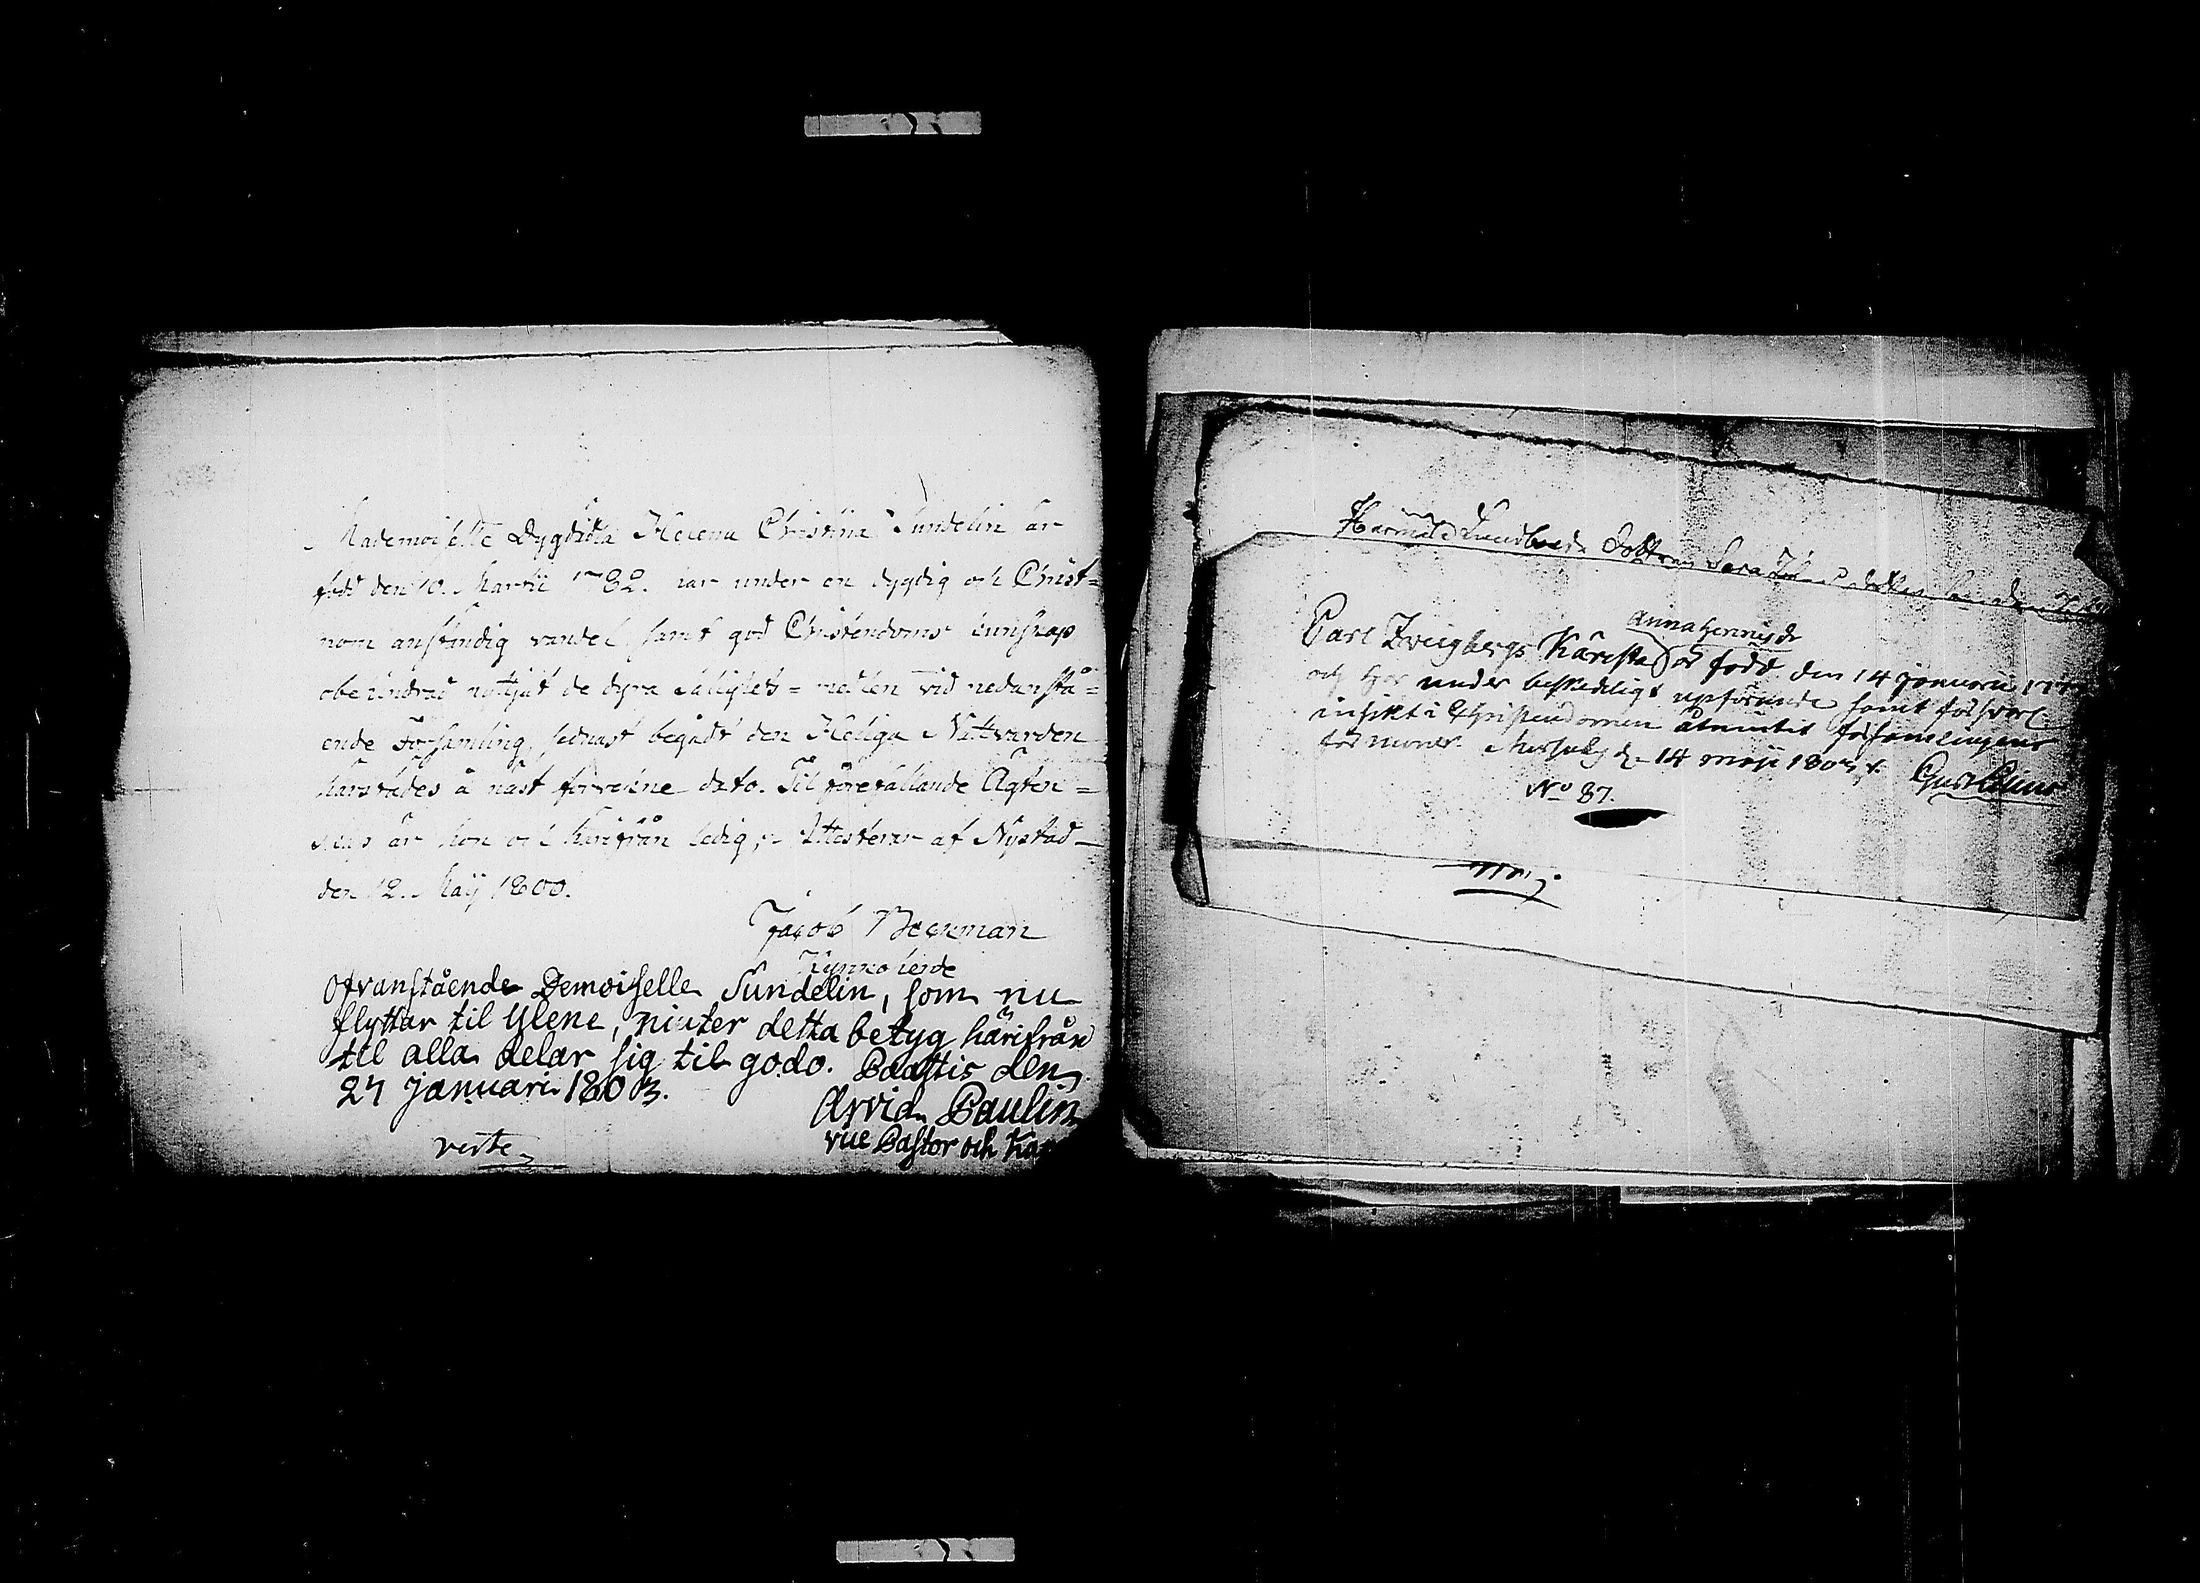 Mademoiselle Dygdädla Helena Christina Sundelin är
född den 10. Martii 1782. har under en dygdig och Christ=
nom anständig vandel samt god Christendoms kunskap
obehindrad nyttjat de dyra salighets=medlen vid nedanstå=
ende Församling, sednast begådt den Heliga Nattvarden
härstädes å näst förrvekne dato. Til förefallande Ägten=
skap är hon och härifrån ledig; Attesterar af Nystad
den 12. Maij 1800.
Jacob Beckman
Kyrkoherde
Ofvanstående Demoiselle Sundelin, som nu
flyttar til Ylene, niuter detta betyg härifrån
til alla delar sig til godo. Paattis den
27 Januarii 1803.
Arvid Paulin
vice Pastor och
verte
Dottren Sara
Anna
Carl Zweigbergs Käresta är född den 14 Januarii
och har under beskedeligt upförande samt försvarl.
insikt i Christendomen åtniutit församlingens
förmoner. d. 14 Maji
Gust
No 87.